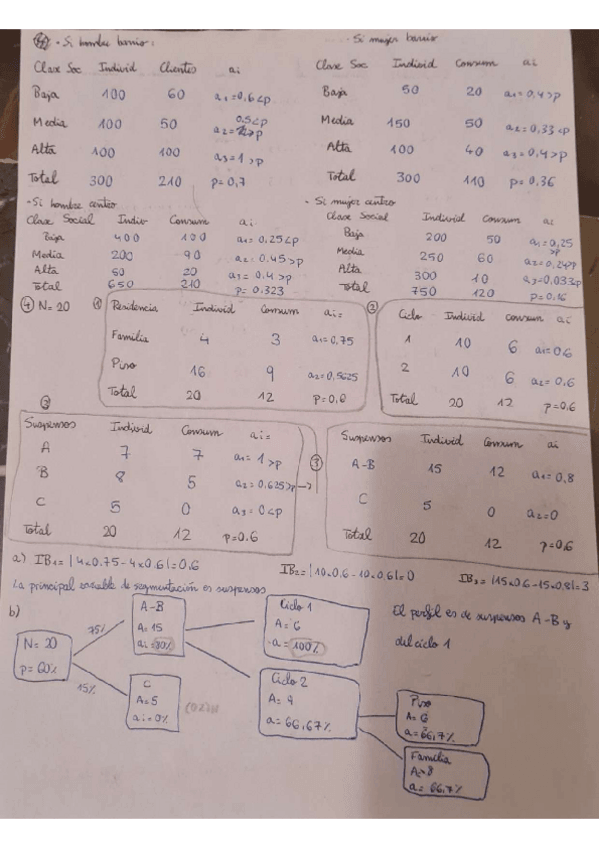 · Si hombre barrio: · Si mujer barrio
Clase Soc Individ Clientes ai Clase Soc. Individ Consum ai
Baja 100 60 a1=0,6<p Baja 50 20 a1=0,4>p
Media 100 50 0.5<p a2= >p Media 150 50 a2=0,33<p
Alta 100 100 a3=1>p Alta 100 40 a3=0,4>p
Total 300 210 p=0,7 Total 300 110 p=0,36
· Si hombre centro · Si mujer centro
Clase Social Indiv Consum ai Clase Social Individ Consum ai
Baja 400 100 a1=0,25<p Baja 200 50 a1=0,25>p
Media 200 90 a2=0,45>p Media 250 60 a2=0,24>p
Alta 50 20 a3=0.4>p Alta 300 10 a3=0,033<p
Total 650 210 p=0.323 Total 750 120 p=0.16
④ N=20 ① Residencia Individ Consum ai= ② Ciclo Individ consum ai
Familia 4 3 a1=0,75 1 10 6 a1=0.6
Piso 16 9 a2=0,5625 2 10 6 a2=0.6
Total 20 12 p=0,6 Total 20 12 p=0.6
③ Suspensos Individ Consum ai= ③ Suspensos Individ Consum ai
A 7 7 a1=1>p A-B 15 12 a1=0,8
B 8 5 a2=0.625>p→ C 5 0 a2=0
C 5 0 a3=0<p Total 20 12 p=0,6
Total 20 12 p=0.6
a) IB1=|4x0.75-4x0.6|=0.6 IB2=|10x0.6-10x0.6|=0 IB3=|15x0.6-15x0.8|=3
La principal variable de segmentación es suspensos
b) N=20 p=60%
75% A-B A=15 ai=80%
15% C A=5 ai=0%
Ciclo 1 A=6 a=100%
Ciclo 2 A=9 a=66,67%
Piso A=6 a=66,7%
Familia A=8 a=66.7%
El perfil es de suspensos A-B y
del ciclo 1